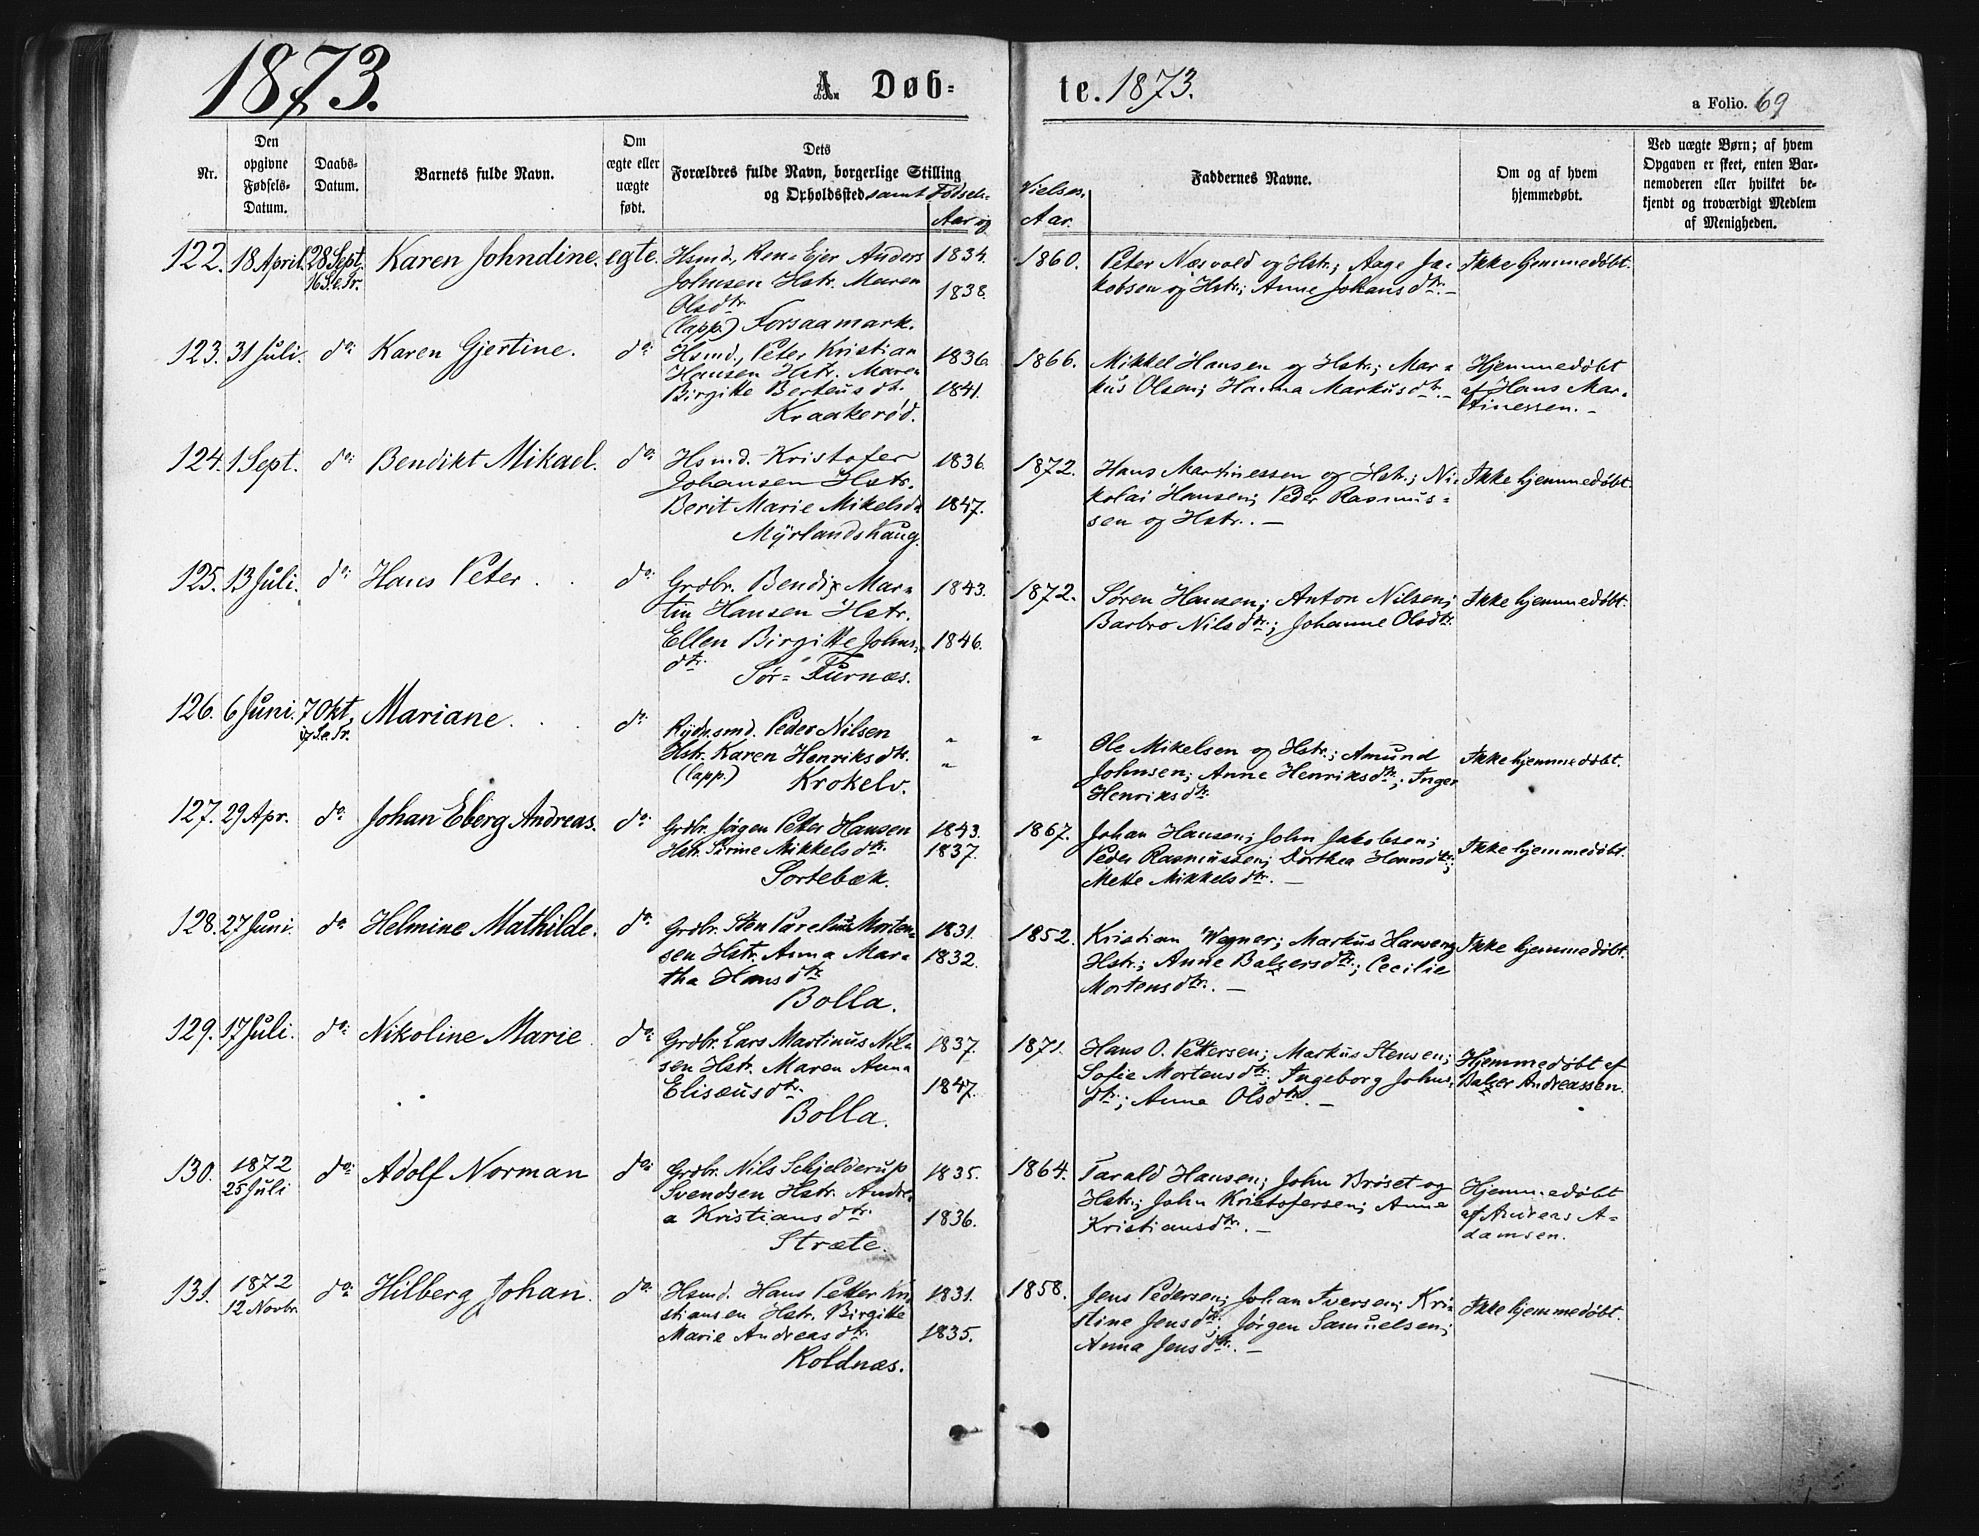 1873.
A. Døb-
te. 1873.
a Folio. 69
Nr.
Den
opgivne
Fødsels-
Datum.
Daabs-
Datum.
Barnets fulde Navn.
Om
ægte eller
uægte
født.
Dets
Forældres fulde Navn, borgerlige Stilling
og Opholdssted samt Fødsels-
Aar og
Vielses
Aar.
Faddernes Navne.
Om og af hvem
hjemmedøbt.
Ved uægte Børn; af hvem
Opgaven er skeet, enten Bar-
nemoderen eller hvilket be-
kjendt og troværdigt Medlem
af Menigheden.
122. 18 April. 28 Sept. Karen Johndine. egte. Hsmd., Ren-Ejer Anders 1834. 1860. Peter Næsvold og Hstr.; Aage Ja- Ikke hjemmedøbt.
16 S. e. Tr. Johnsen Hstr. Maren 1838. kobsen og Hstr.; Anne Johansdtr. –
Olsdtr
(lapp.) Forsaamark.
123. 31 Juli. do Karen Gjertine. do Hsmd., Peter Kristian 1836. 1866. Mikkel Hansen og Hstr.; Mar- Hjemmedøbt
Hansen Hstr. Maren
Birgitte Berteusdtr. 1841. kus Olsen; Hanna Markusdtr. – af Hans Mar-
Kraakerød. tinessen. –
124. 1 Sept. do Bendikt Mikael. do Hsmd. Kristofer 1836. 1872. Hans Martinessen og Hstr.; Ni- Ikke hjemmedøbt.
Johansen Hstr. kolai Hansen; Peder Rasmus-
Berit Marie Mikelsd. 1847. sen og Hstr. –
Myrlandshaug.
125. 13 Juli. do Hans Peter. do Grdbr. Bendix Mar- 1843. 1872. Søren Hansen; Anton Nilsen; Ikke hjemmedøbt.
tin Hansen Hstr. Barbro Nilsdtr.; Johanne Olsdtr.
Ellen Birgitte Johns- 1846.
dtr. Sør-Furnæs.
126. 6 Juni. 7 Okt. Mariane. do Rydn.smd. Peder Nilsen " " Ole Mikelsen og Hstr.; Amund Ikke hjemmedøbt.
17 S. e. Tr. Hstr. Karen Henriksdtr. " Johnsen; Anne Henriksdtr.; Inger
(lapp.) Krokelv. Henriksdtr.
127. 29 Apr. do Johan Eberg Andreas. do Grdbr. Jørgen Peter Hansen 1843. 1867. Johan Hansen; John Jakobsen; Ikke hjemmedøbt.
Hstr. Sirine Mikkelsdtr. 1837. Peder Rasmussen; Dorthea Hansdtr;
Sortebæk. Mette Mikkelsdtr. –
128. 27 Juni. do Helmine Mathilde. do Grdbr. Sten Parelius Morten- 1831. 1852. Kristian Wegner; Markus Hansen og Ikke hjemmedøbt.
sen Hstr. Anna Mar- 1832. Hstr.; Anne Balzersdtr.; Cecilie
tha Hansdtr Mortensdtr. –
Bolla.
129. 17 Juli. do Nikoline Marie. do Grdbr. Lars Martinus Nil- 1837. 1871. Hans O. Pettersen; Markus Stensen; Hjemmedøbt af
sen Hstr. Maren Anna Sofie Mortensdtr. Ingeborg Johns- Balzer Andreassen.
Elisæusdtr. 1847. dtr.; Anna Olsdtr. –
Bolla.
130. 1872 do Adolf Norman do Grdbr. Nils Schjelderup 1835. 1864. Tarald Hansen; John Brøset og Hjemmedøbt
25 Juli Svendsen Hstr. Andre- Hstr.; John Kristofersen; Anne af Andreas A-
a Kristiansdtr. 1836. Kristiansdtr. – damsen.
Stræte.
131. 1872 do Hilberg Johan. do Hsmd. Hans Petter Kri- 1831. 1858. Jens Pedersen; Johan Iversen; Kri- Ikke hjemmedøbt.
12 Novbr. stiansen Hstr. Birgitte stine Jensdtr; Jørgen Samuelsen;
Marie Andreasdtr. 1835. Anna Jensdtr. –
Koldnæs.